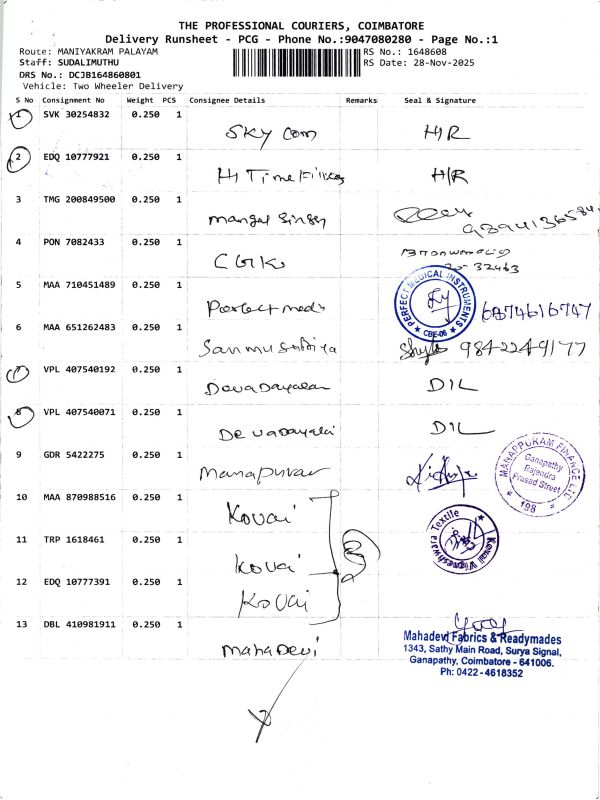 THE PROFESSIONAL COURIERS, COIMBATORE
Delivery Runsheet - PCG - Phone No.:9047080280 - Page No.:1
Route: MANIYAKRAM PALAYAM
RS No.: 1648608
Staff: SUDALIMUTHU
RS Date: 28-Nov-2025
DRS No.: DCJB164860801
Vehicle: Two Wheeler Delivery
S No Consignment No Weight PCS Consignee Details Remarks Seal & Signature
1 SVK 30254832 0.250 1
SKY com H/R
2 EDQ 10777921 0.250 1
Hi Time H/R
3 TMG 200849500 0.250 1
mangal Singh
4 PON 7082433 0.250 1
5 MAA 710451489 0.250 1
Perfect medi
PERFECT MEDICAL INSTRUMENTS
CBE-06
6 MAA 651262483 0.250 1
9842249177
7 VPL 407540192 0.250 1
Devadayalan D/L
8 VPL 407540071 0.250 1
Devadayalan D/L
9 GDR 5422275 0.250 1
MANAPPURAM FINANCE
Ganapathy
Rajendra
Prasad Street
10 MAA 870988516 0.250 1
Kovai
11 TRP 1618461 0.250 1
Kovai
Kovai Vigneshwara Textile
12 EDQ 10777391 0.250 1
Kovai
13 DBL 410981911 0.250 1
mahaDevi
Mahadevi Fabrics & Readymades
1343, Sathy Main Road, Surya Signal,
Ganapathy, Coimbatore - 641006.
Ph: 0422 - 4618352